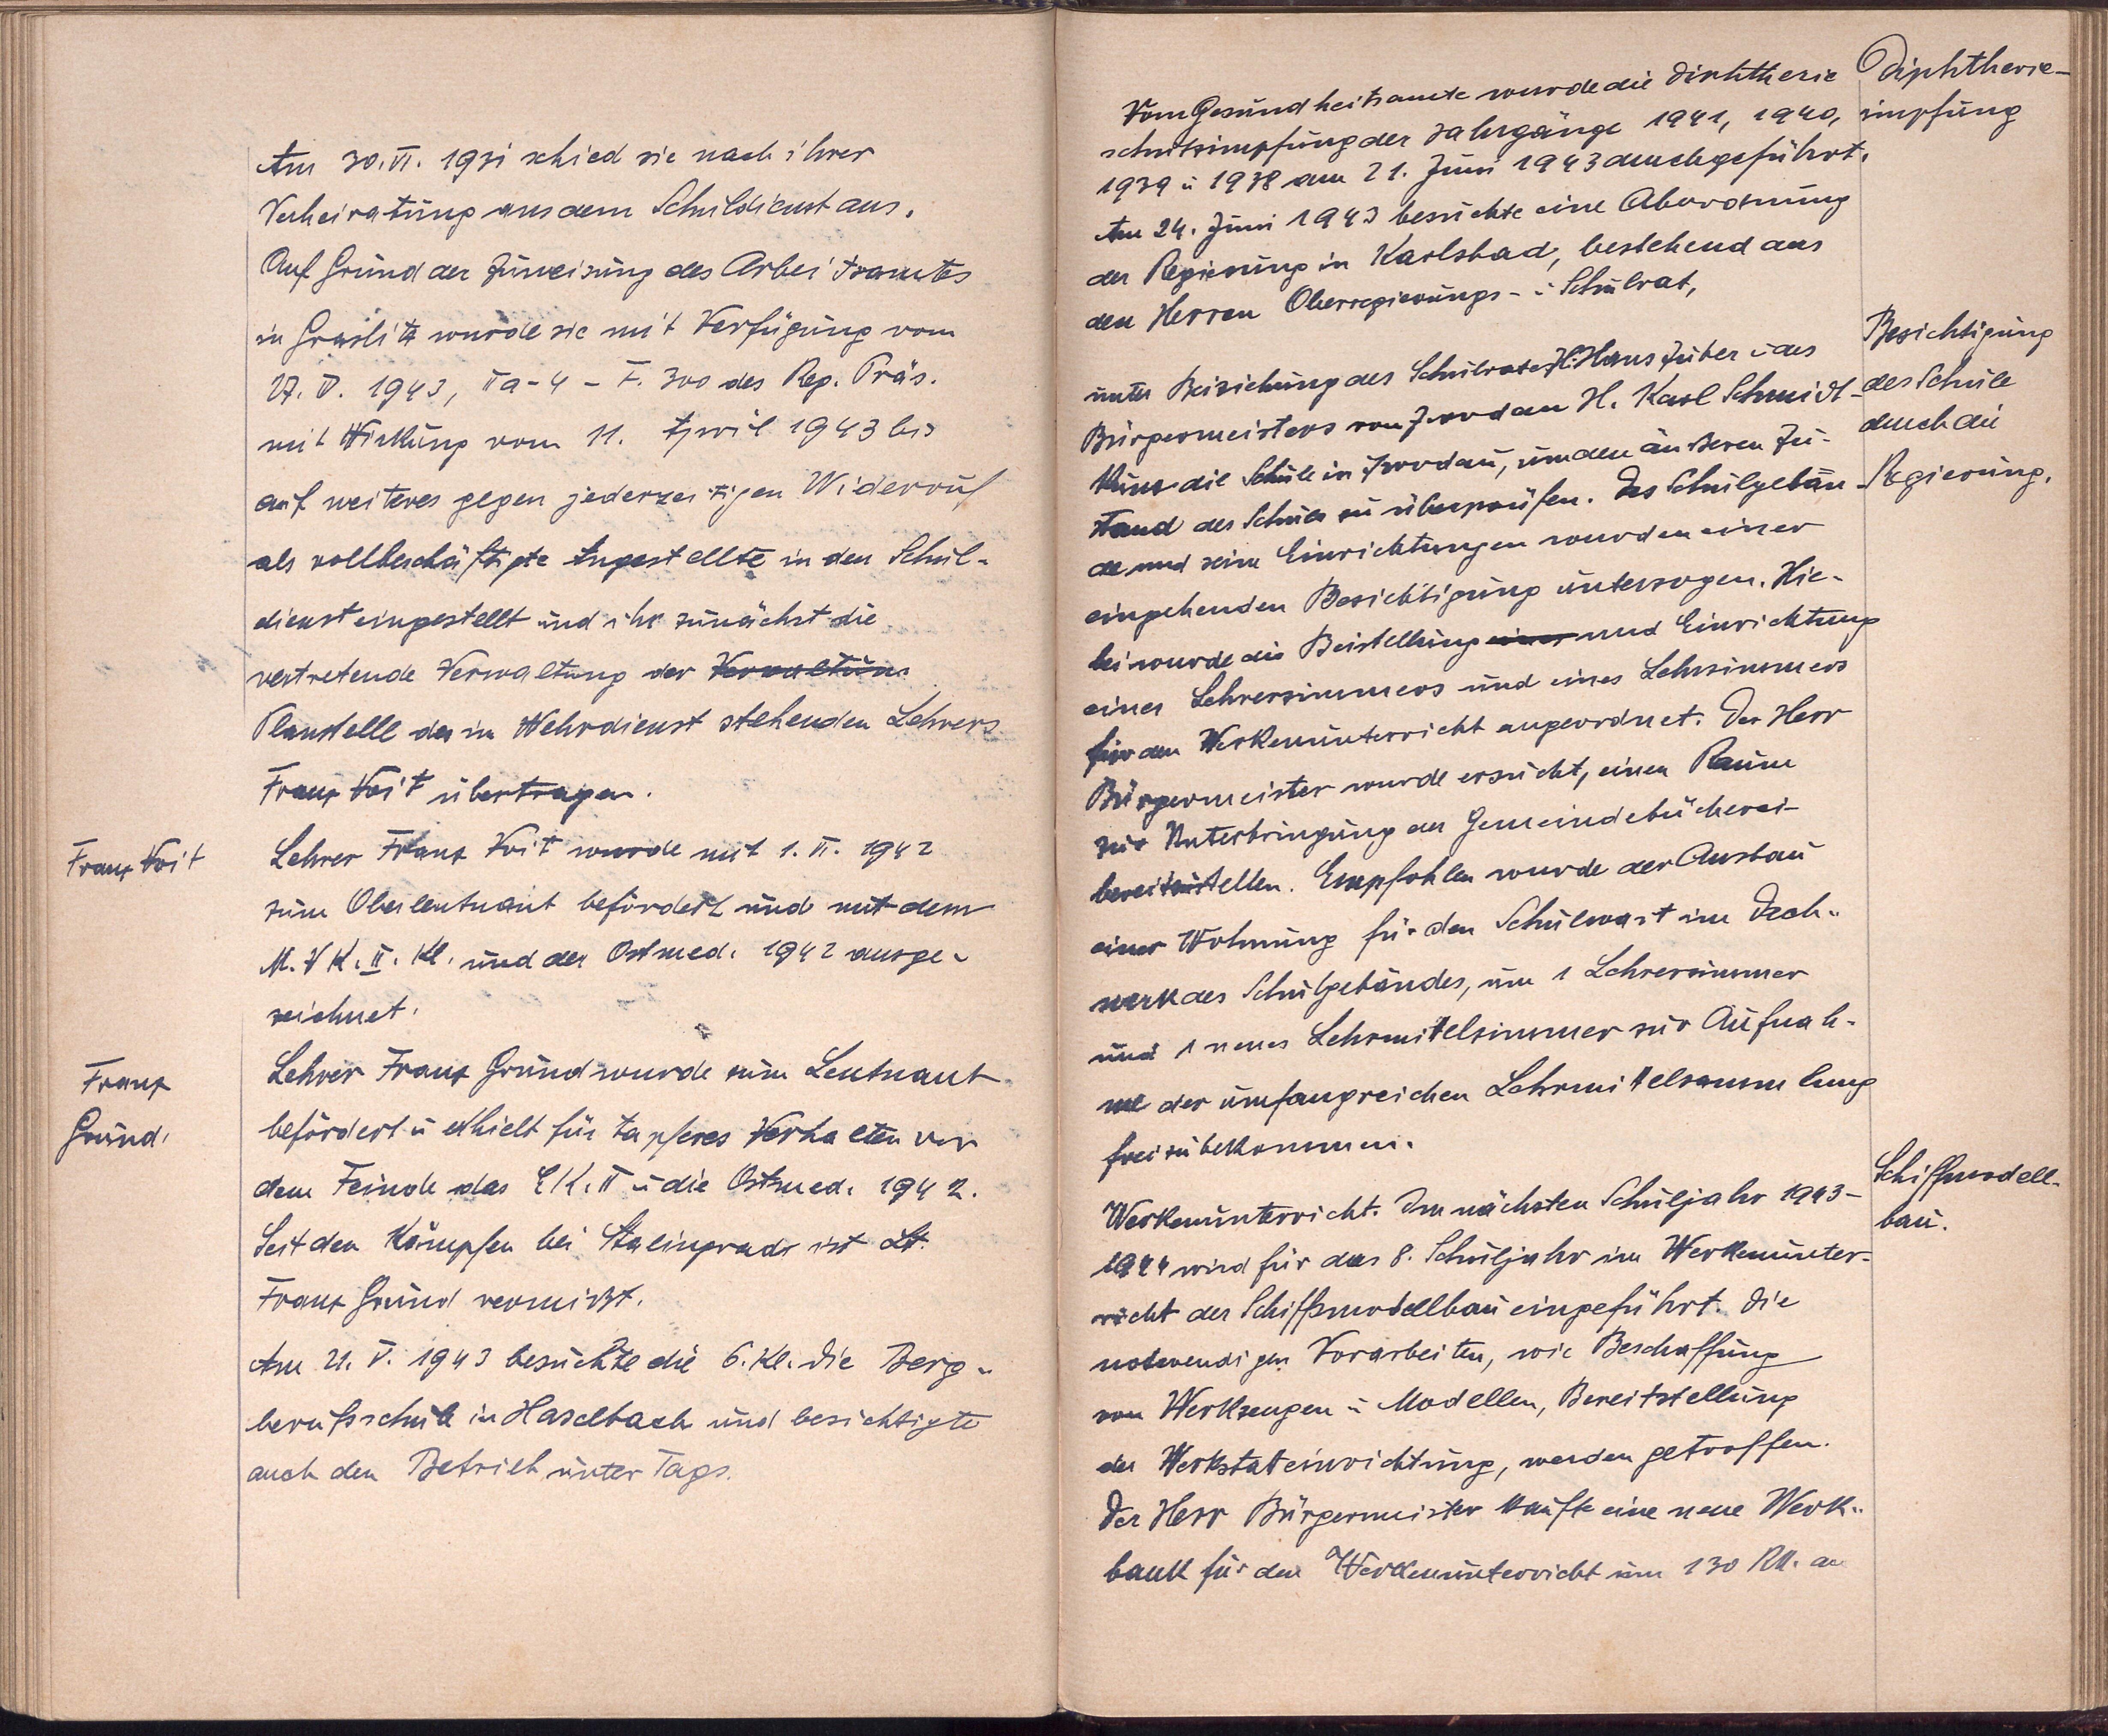 Am 30. VI. 1931 schied sie nach ihrer
Verheiratung aus dem Schuldienst aus.
Auf Grund der Zuweisung des Arbeitsamtes
in Graslitz wurde sie mit Verfügung vom
27. V. 1943, IIa-4 - F. 300 des Reg. Präs.
mit Wirkung vom 11. April 1943 bis
auf weiteres gegen jederzeitigen Widerruf
als vollbeschäftigte Angestellte in den Schul-
dienst eingestellt und ihr zunächst die
vertretende Verwaltung der Verwaltung
Planstelle des im Wehrdienst stehenden Lehrers
Franz Voit übertragen.
Franz Voit
Lehrer Franz Voit wurde mit 1. VI. 1942
zum Oberleutnant befördert und mit dem
M. V K. II. Kl. und der Ostmed. 1942 ausge-
zeichnet.
Franz
Grund.
Lehrer Franz Grund wurde zum Leutnant
befördert u erhielt für tapferes Verhalten vor
dem Feinde das EK. II u die Ostmed. 1942.
Seit den Kämpfen bei Stalingrad ist Lt.
Franz Grund vermißt.
Am 21. V. 1943 besuchte die 6. Kl. die Berg-
berufsschule in Haselbach und besichtigte
auch den Betrieb unter Tags.
Diphtherie-
impfung
Vom Gesundheitsamte wurde die Diphtherie
schutzimpfung der Jahrgänge 1941, 1940,
1939 u 1938 am 21. Juni 1943 durchgeführt.
Am 24. Juni 1943 besuchte eine Abordnung
der Regierung in Karlsbad, bestehend aus
den Herren Oberregierungs- u Schulrat,
Besichtigung
der Schule
durch die
Regierung.
unter Beiziehung des Schulrates H. Hans Zuber u des
Bürgermeisters von Zwodau H. Karl Schmidt-
die Schule in Zwodau, um den äußeren Zu-
stand der Schule zu überprüfen. Das Schulgebäu-
de und seine Einrichtungen wurden einer
eingehenden Besichtigung unterzogen. Hie-
bei wurde die Beistellung einer und Einrichtung
eines Lehrerzimmers und eines Lehrzimmers
für den Werkenunterricht angeordnet. Der Herr
Bürgermeister wurde ersucht, einen Raum
zur Unterbringung der Gemeindebücherei
bereitzustellen. Empfohlen wurde der Ausbau
einer Wohnung für den Schulwart im Dach-
werk des Schulgebäudes, um 1 Lehrerzimmer
und 1 neues Lehrmittelzimmer zur Aufnah-
me der umfangreichen Lehrmittelsammlung
frei zu bekommen.
Schiffmodell-
bau.
Werkenunterricht. Im nächsten Schuljahr 1943-
1944 wird für das 8. Schuljahr im Werkenunter-
richt der Schiffsmodellbau eingeführt. Die
notwendigen Vorarbeiten, wie Beschaffung
von Werkzeugen u Modellen, Bereitstellung
der Werkstatteinrichtung, werden getroffen.
Der Herr Bürgermeister kaufte eine neue Werk-
bank für den Werkenunterricht um 130 RM. an